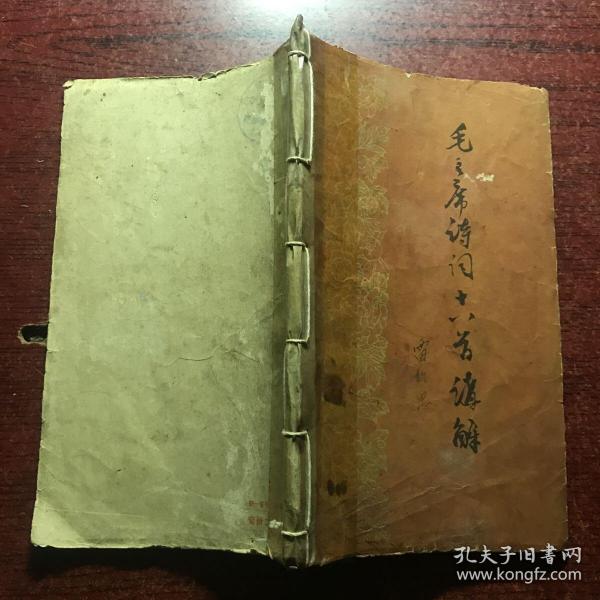 毛主席诗词十八首讲解
孔夫子旧书网
www.kongfz.com